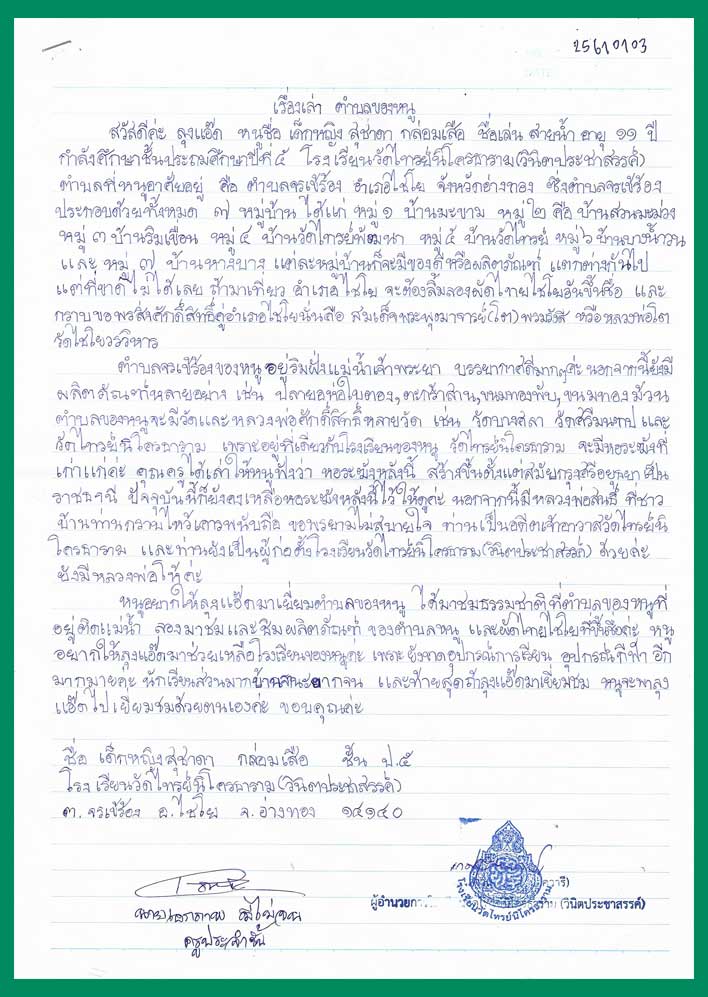 25610103
เรื่องเล่า ตำบลของหนู
สวัสดีค่ะ ลุงแอ๊ด หนูชื่อ เด็กหญิง สุชาดา กล่อมเสือ ชื่อเล่น สายน้ำ อายุ ๑๑ ปี
กำลังศึกษาชั้นประถมศึกษาปีที่ ๕ โรงเรียนวัดไทรย์นิโครธาราม(วินิตประชาสรรค์)
ตำบลที่หนูอาศัยอยู่ คือ ตำบลจรเข้ร้อง อำเภอไชโย จังหวัดอ่างทอง ซึ่งตำบลจรเข้ร้อง
ประกอบด้วยทั้งหมด ๗ หมู่บ้าน ได้แก่ หมู่ ๑ บ้านมะขาม หมู่ ๒ คือ บ้านสวนมะม่วง
หมู่ ๓ บ้านริมเขื่อน หมู่ ๔ บ้านวัดไทรย์พัฒนา หมู่ ๕ บ้านวัดไทรย์ หมู่ ๖ บ้านบางน้ำวน
และ หมู่ ๗ บ้านหางบาง แต่ละหมู่บ้านก็จะมีของดีหรือผลิตภัณฑ์ แตกต่างกันไป
แต่ที่ขาดไม่ได้เลย ถ้ามาเที่ยว อำเภอไชโย จะต้องลิ้มลองผัดไทยไชโยอันขึ้นชื่อ และ
กราบขอพรสิ่งศักดิ์สิทธิ์คู่อำเภอไชโยนั่นคือ สมเด็จพระพุฒาจารย์(โต)พรมรังสี หรือหลวงพ่อโต
วัดไชโยวรวิหาร
ตำบลจรเข้ร้องของหนู อยู่ริมฝั่งแม่น้ำเจ้าพระยา บรรยากาศดีมากๆค่ะ นอกจากนี้ยังมี
ผลิตภัณฑ์หลายอย่าง เช่น ปลาย่อห่อใบตอง,ตะกร้าสาน,ขนมทองพับ,ขนมทองม้วน
ตำบลของหนูจะมีวัดและหลวงพ่อศักดิ์สิทธิ์หลายวัด เช่น วัดบางศลา วัดศรีมหาโป และ
วัดไทรย์นิโครธาราม เพราะอยู่ที่เดียวกับโรงเรียนของหนู วัดไทรย์นิโครธาราม จะมีหอระฆังที่
เก่าแก่ค่ะ คุณครูได้เล่าให้หนูฟังว่า หอระฆังหลังนี้ สร้างขึ้นตั้งแต่สมัยกรุงศรีอยุธยาเป็น
ราชธานี ปัจจุบันนี้ก็ยังคงเหลือหอระฆังหลังนี้ไว้ให้ดูค่ะ นอกจากนี้มีหลวงพ่อสนธิ์ ที่ชาว
บ้านท่านกราบไหว้เคารพนับถือ ขอพรยามไม่สบายใจ ท่านเป็นอดีตเจ้าอาวาสวัดไทรย์นิ
โครธาราม และท่านยังเป็นผู้ก่อตั้งโรงเรียนวัดไทรย์นิโครธาราม(วินิตประชาสรรค์) ด้วยค่ะ
ยังมีหลวงพ่อให้ค่ะ
หนูอยากให้ลุงแอ๊ดมาเยี่ยมตำบลของหนู ได้มาชมธรรมชาติที่ตำบลของหนูที่
อยู่ติดแม่น้ำ ลองมาชมและชิมผลิตภัณฑ์ ของตำบลหนู และผัดไทยไชโยที่ขึ้นชื่อค่ะ หนู
อยากให้ลุงแอ๊ดมาช่วยเหลือโรงเรียนของหนูค่ะ เพราะยังขาดอุปกรณ์การเรียน อุปกรณ์กีฬา อีก
มากมายค่ะ นักเรียนส่วนมากบ้านฐานะยากจน และท้ายสุดถ้าลุงแอ๊ดมาเยี่ยมชม หนูจะพาลุง
แอ๊ดไปเยี่ยมชมด้วยตนเองค่ะ ขอบคุณค่ะ
ชื่อ เด็กหญิง สุชาดา กล่อมเสือ ชั้น ป.๕
โรงเรียนวัดไทรย์นิโครธาราม(วินิตประชาสรรค์)
ต.จรเข้ร้อง อ.ไชโย จ.อ่างทอง ๑๔๑๔๐
ครูประจำชั้น
ผู้อำนวยการ (วินิตประชาสรรค์)
โรงเรียนวัดไทรย์นิโครธาราม